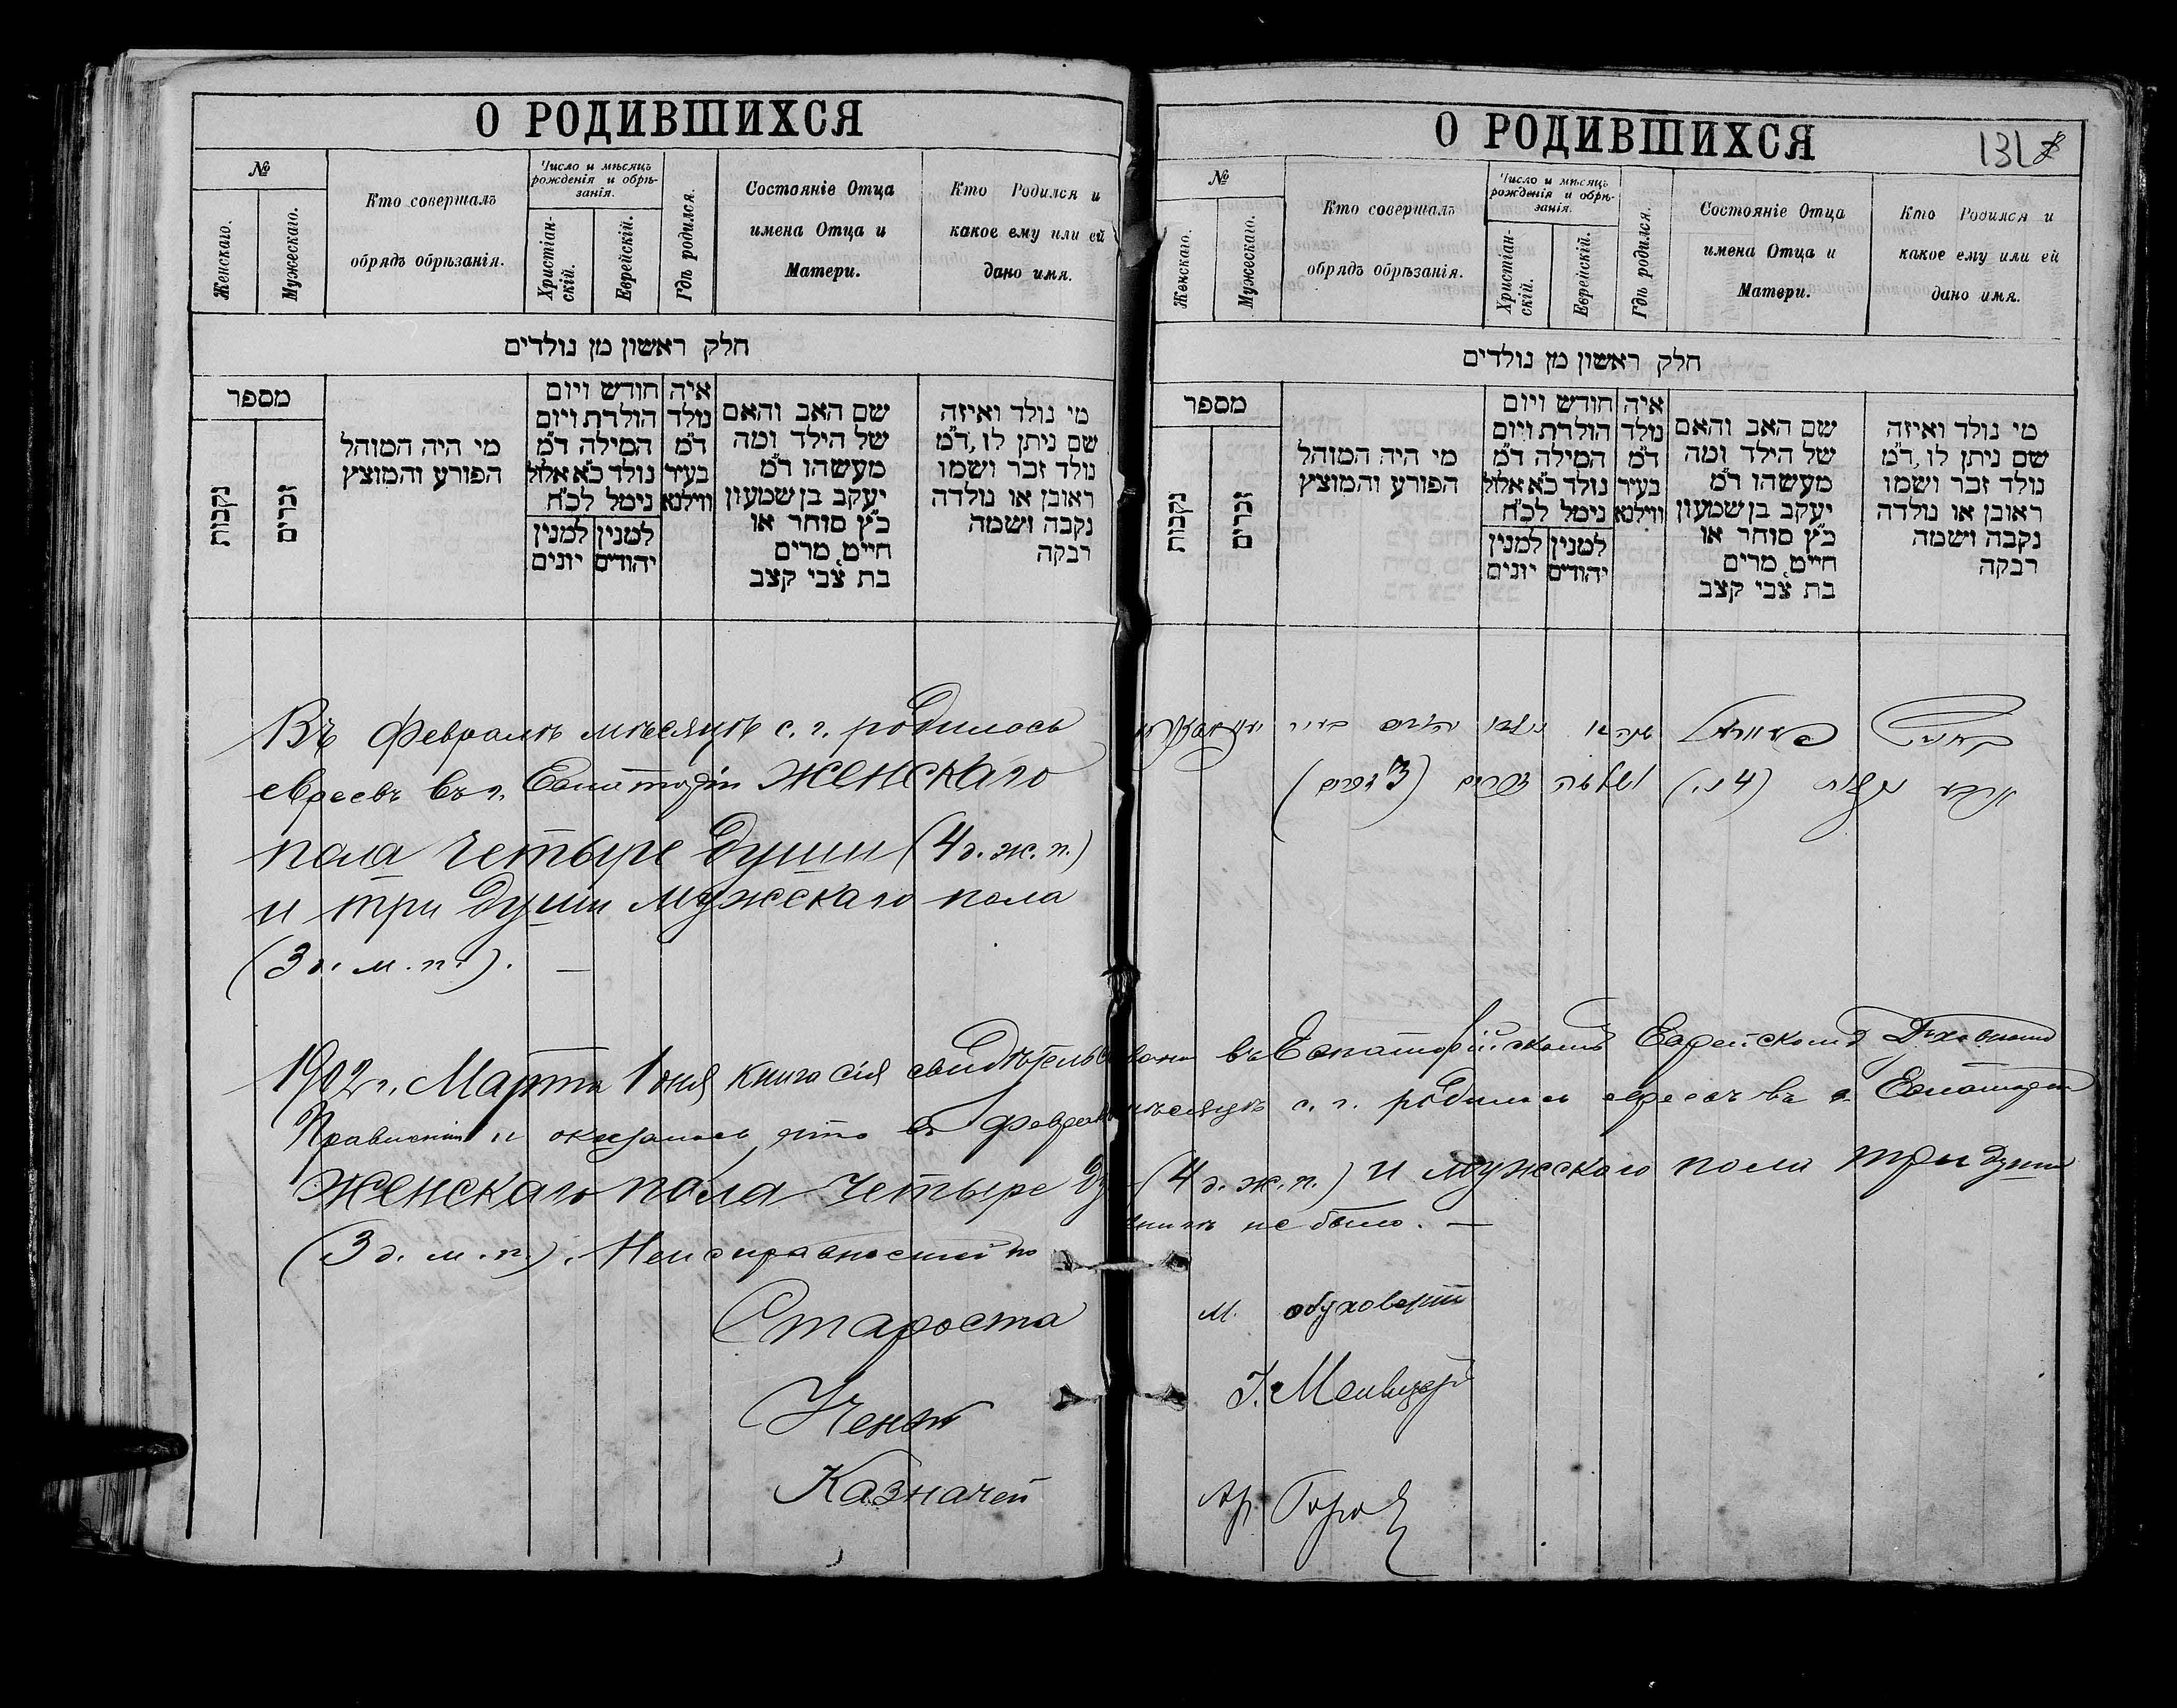 О РОДИВШИХСЯ
№
Женскаго.
Мужескаго.
Кто совершалъ
обрядъ обрѣзанія.
Число и мѣсяцъ
рожденія и обрѣ-
занія.
Христіан-
скій.
Еврейскій.
Гдѣ родился.
Состояніе Отца
имена Отца и
Матери.
Кто Родился и
какое ему или ей
дано имя.
חלק ראשון מן נולדים
מספר
נקבות
זכרים
מי היה המוהל
הפורע והמוצץ
חודש ויום
הולדת ויום
המילה ד״מ
נולד כ״א אלול
נימל לכ״ח
למנין יהודים
למנין יונים
איה
נולד
ד״מ
בעיר
ווילנא
שם האב והאם
של הילד ומה
מעשהו ד״מ
יעקב בן שמעון
כ״ץ סוחר או
חייט, מרים
בת צבי קצב
מי נולד ואיזה
שם ניתן לו, ד״מ
נולד זכר ושמו
ראובן או נולדה
נקבה ושמה
רבקה
Въ Февралѣ мѣсяцѣ с. г. родилось
евреевъ въ г. Евпаторіи женскаго
пола четыре души (4 д. ж. п.)
и три души мужескаго пола
(3 д. м. п.). —
О РОДИВШИХСЯ
131
№
Женскаго.
Мужескаго.
Кто совершалъ
обрядъ обрѣзанія.
Число и мѣсяцъ
рожденія и обрѣ-
занія.
Христіан-
скій.
Еврейскій.
Гдѣ родился.
Состояніе Отца
имена Отца и
Матери.
Кто Родился и
какое ему или ей
дано имя.
חלק ראשון מן נולדים
מספר
נקבות
זכרים
מי היה המוהל
הפורע והמוצץ
חודש ויום
הולדת ויום
המילה ד״מ
נולד כ״א אלול
נימל לכ״ח
למנין יהודים
למנין יונים
איה
נולד
ד״מ
בעיר
ווילנא
שם האב והאם
של הילד ומה
מעשהו ד״מ
יעקב בן שמעון
כ״ץ סוחר או
חייט, מרים
בת צבי קצב
מי נולד ואיזה
שם ניתן לו, ד״מ
נולד זכר ושמו
ראובן או נולדה
נקבה ושמה
רבקה
1902 г. Марта 1 дня книга сія свидѣтельствована въ Евпаторійскомъ Еврейскомъ Духовномъ
Правленіи и оказалось, что въ Февралѣ мѣсяцѣ с. г. родилось евреевъ въ г. Евпаторіи
женскаго пола четыре (4 д. ж. п.) и мужескаго пола три души
(3 д. м. п.). Неисправностей по книгѣ не было. —
Староста М.
Ученый
Казначей